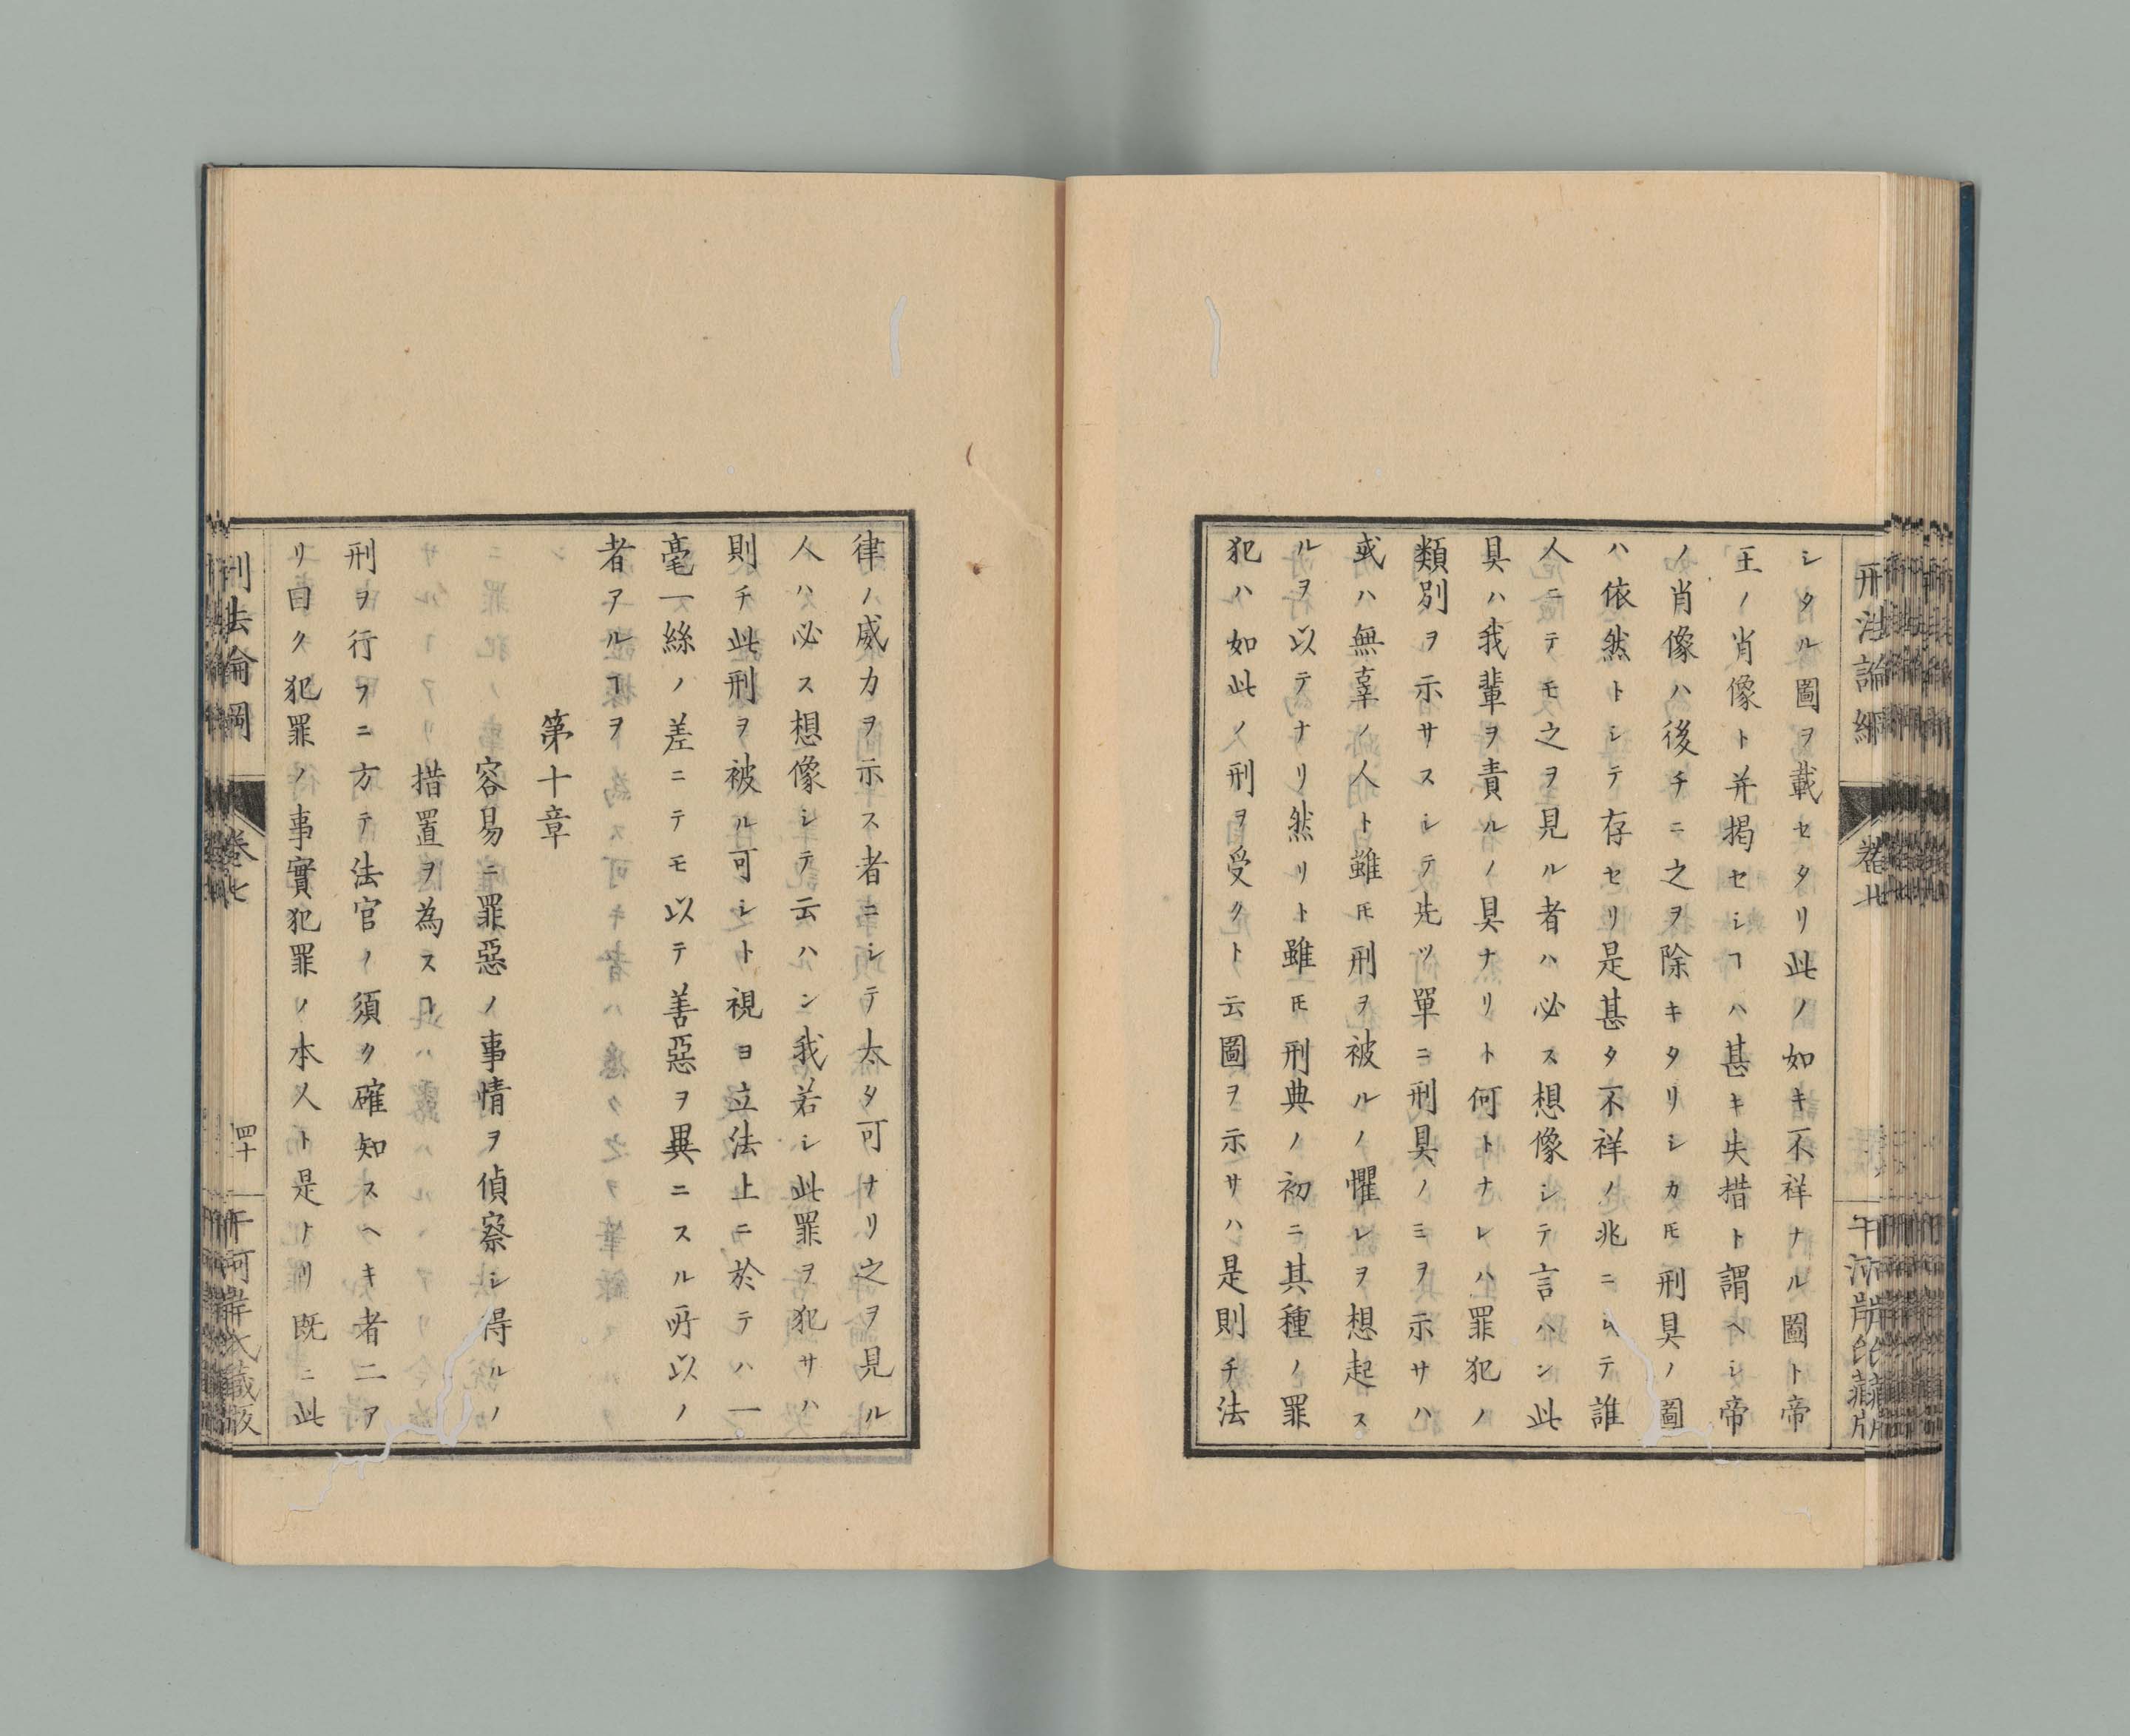 シタル圖ヲ載セタリ此ノ如キ不祥ナル圖ト帝
王ノ肖像ト并揭セシヿハ甚キ失措ト謂ヘシ帝
ノ肖像ハ後チニ之ヲ除キタリシカ𪜈刑具ノ圖
ハ依然トシテ存セリ是甚タ不祥ノ兆ニシテ誰
人ニテモ之ヲ見ル者ハ必ス想像シテ言ハン此
具ハ我輩ヲ責ルノ具ナリト何トナレハ罪犯ノ
類別ヲ示サスシテ先ツ單ニ刑具ノミヲ示サハ
或ハ無辜ノ人ト雖𪜈刑ヲ被ルノ懼レヲ想起ス
ルヲ以テナリ然リト雖𪜈刑典ノ初ニ其種ノ罪
犯ハ如此ノ刑ヲ受クト云圖ヲ示サハ是則チ法
律ノ威力ヲ示ス者ニシテ太タ可ナリ之ヲ見ル
人ハ必ス想像シテ云ハン我若シ此罪ヲ犯サハ
則チ此刑ヲ被ル可シト視ヨ立法上ニ於テハ一
毫一絲ノ差ニテモ以テ善惡ヲ異ニスル所以ノ
者アルヿヲ
第十章
容易ニ罪惡ノ事情ヲ偵察シ得ルノ
措置ヲ為スヿ
刑ヲ行フニ方テ法官ノ須ク確知スヘキ者二ア
リ曰ク犯罪ノ事實犯罪ノ本人ト是ナリ既ニ此
刑法論綱
卷七
四十